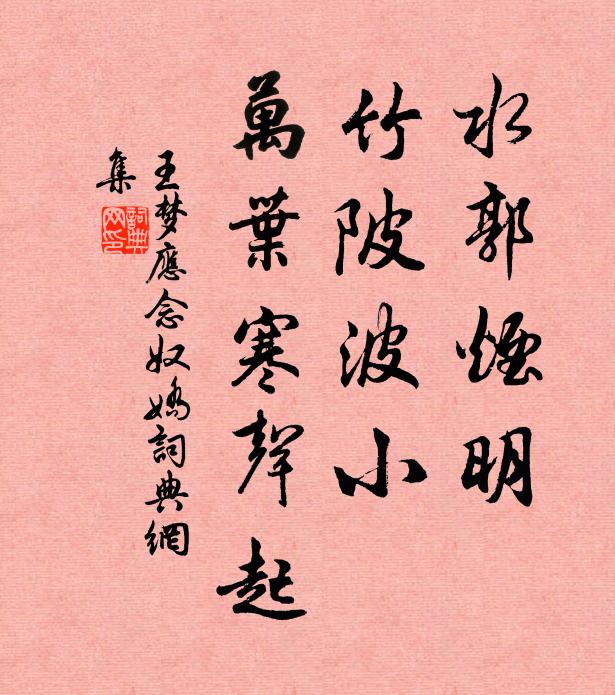 水郭煙明
竹陂波小
萬葉寒聲起
王梦應念奴嬌詞典網
集
詞典網印